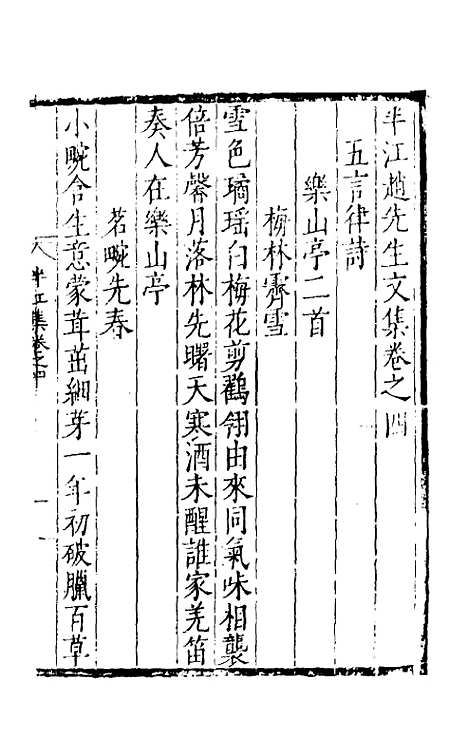 半江趙先生文集卷之四
五言律詩
樂山亭二首
梅林霽雪
雪色璚瑶白梅花剪鶴翎由來同氣味相襲
倍芳馨月落林先曙天寒酒未醒誰家羌笛
奏人在樂山亭
茗畹先春
小畹含生意蒙茸茁細芽一年初破臘百草
半江集卷之四
一